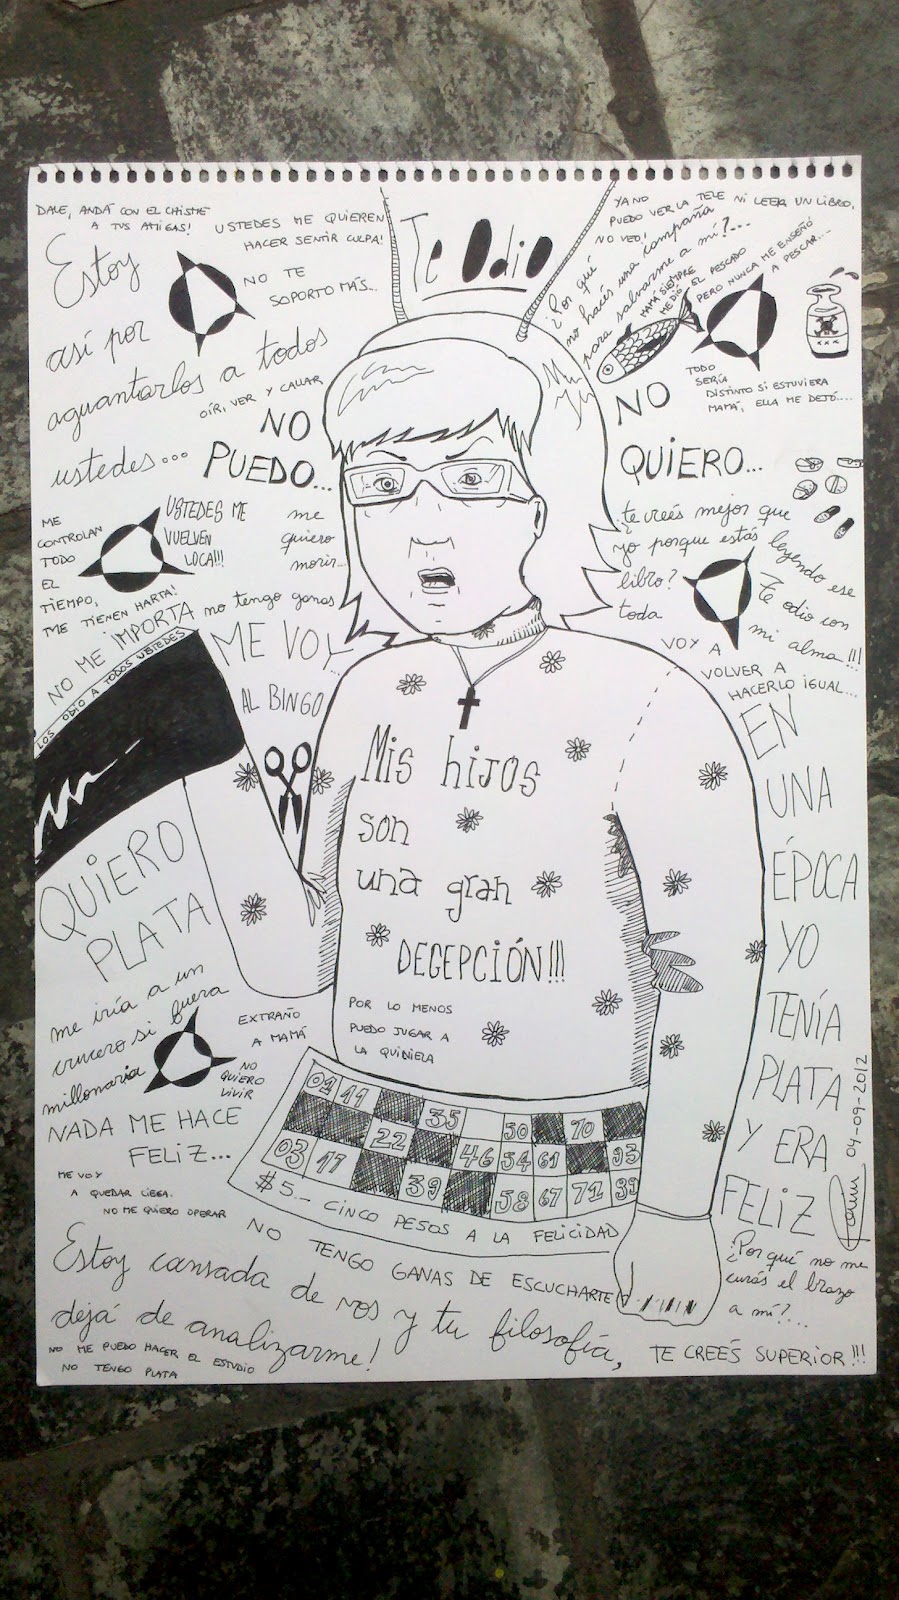 DALE, ANDÁ CON EL CHISME
A TUS AMIGAS!
USTEDES ME QUIEREN
HACER SENTIR CULPA!
Te Odio
YA NO
PUEDO VER LA TELE NI LEER UN LIBRO.
NO VEO!
Estoy
así por
aguantarlos a todos
ustedes...
NO TE
SOPORTO MÁS...
¿Por qué
no hacés una campaña
para salvarme a mí?...
MAMÁ SIEMPRE
ME DIÓ EL PESCADO
PERO NUNCA ME ENSEÑÓ
A PESCAR...
OÍR, VER Y CALLAR
NO
PUEDO...
NO
QUIERO...
TODO
SERÍA
DISTINTO SI ESTUVIERA
MAMÁ, ELLA ME DEJÓ....
ME
CONTROLAN
TODO
EL
TIEMPO,
ME TIENEN HARTA!
USTEDES ME
VUELVEN
LOCA!!!
me
quiero
morir...
¿te creés mejor que
yo porque estás leyendo ese
libro?
Te odio con
toda
mi alma!!!
NO ME IMPORTA
no tengo ganas
LOS ODIO A TODOS USTEDES
ME VOY
AL BINGO
VOY A
VOLVER A
HACERLO IGUAL...
Mis hijos
son
una gran
DEGEPCIÓN!!!
POR LO MENOS
PUEDO JUGAR A
LA QUINIELA
QUIERO
PLATA
EN
UNA
ÉPOCA
YO
TENÍA
PLATA
Y ERA
FELIZ
me iría a un
crucero si fuera
millonaria
EXTRAÑO
A MAMÁ
NO
QUIERO
VIVIR
NADA ME HACE
FELIZ...
ME VOY
A QUEDAR CIEGA.
NO ME QUIERO OPERAR
01 19 35 50 70
22 46 54 61 93
03 17 39 58 67 71 99
$5._ CINCO PESOS A LA FELICIDAD
04-09-2012
NO TENGO GANAS DE ESCUCHARTE
¿Por qué no me
curás el brazo
a mí?...
Estoy cansada de vos y tu filosofía,
dejá de analizarme!
TE CREÉS SUPERIOR!!!
NO ME PUEDO HACER EL ESTUDIO
NO TENGO PLATA